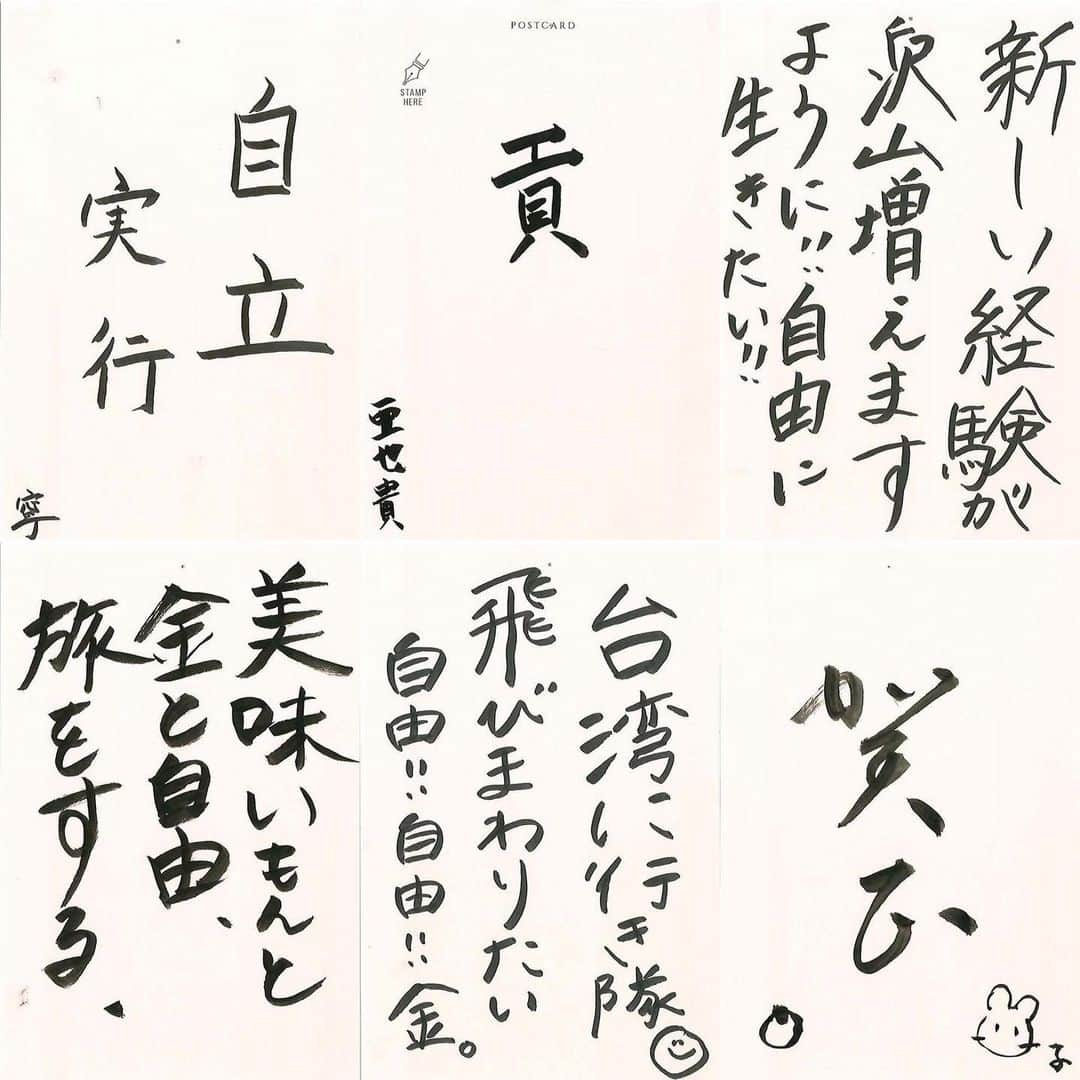 自立
実行
寧
POSTCARD
STAMP
HERE
貢
亜也貴
新しい経験が
沢山増えます
ように!!自由に
生きたい!!
美味いもんと
金と自由、
旅をする、
台湾に行き隊
飛びまわりたい
自由!!自由!!金。
子